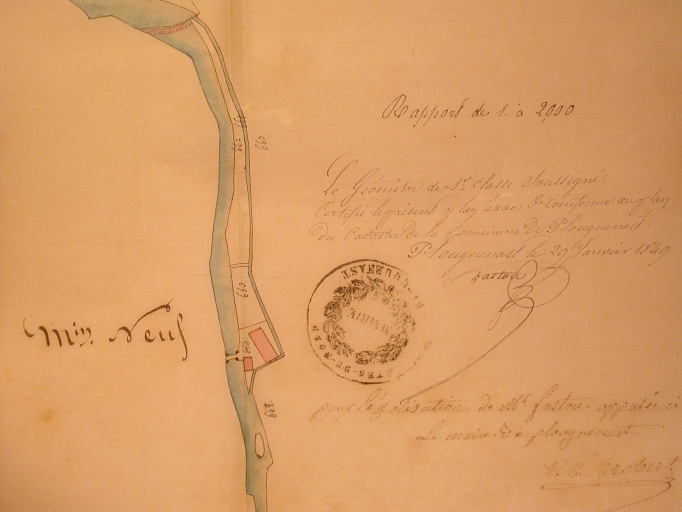 Rapport de 1. à 2000
Le Géomètre de 1re classe Soussigné.
Certifie le présent plan exac & conforme au plan
du Cadastre de la Commune de Plouguenast.
Plouguenast le 29 Janvier 1849
Min. Neuf
660
660
MAIRIE
PLOUGUENAST
COTES-DU-NORD
pour légalisation de Mr. fastou apposée ci
Le maire de plouguenast